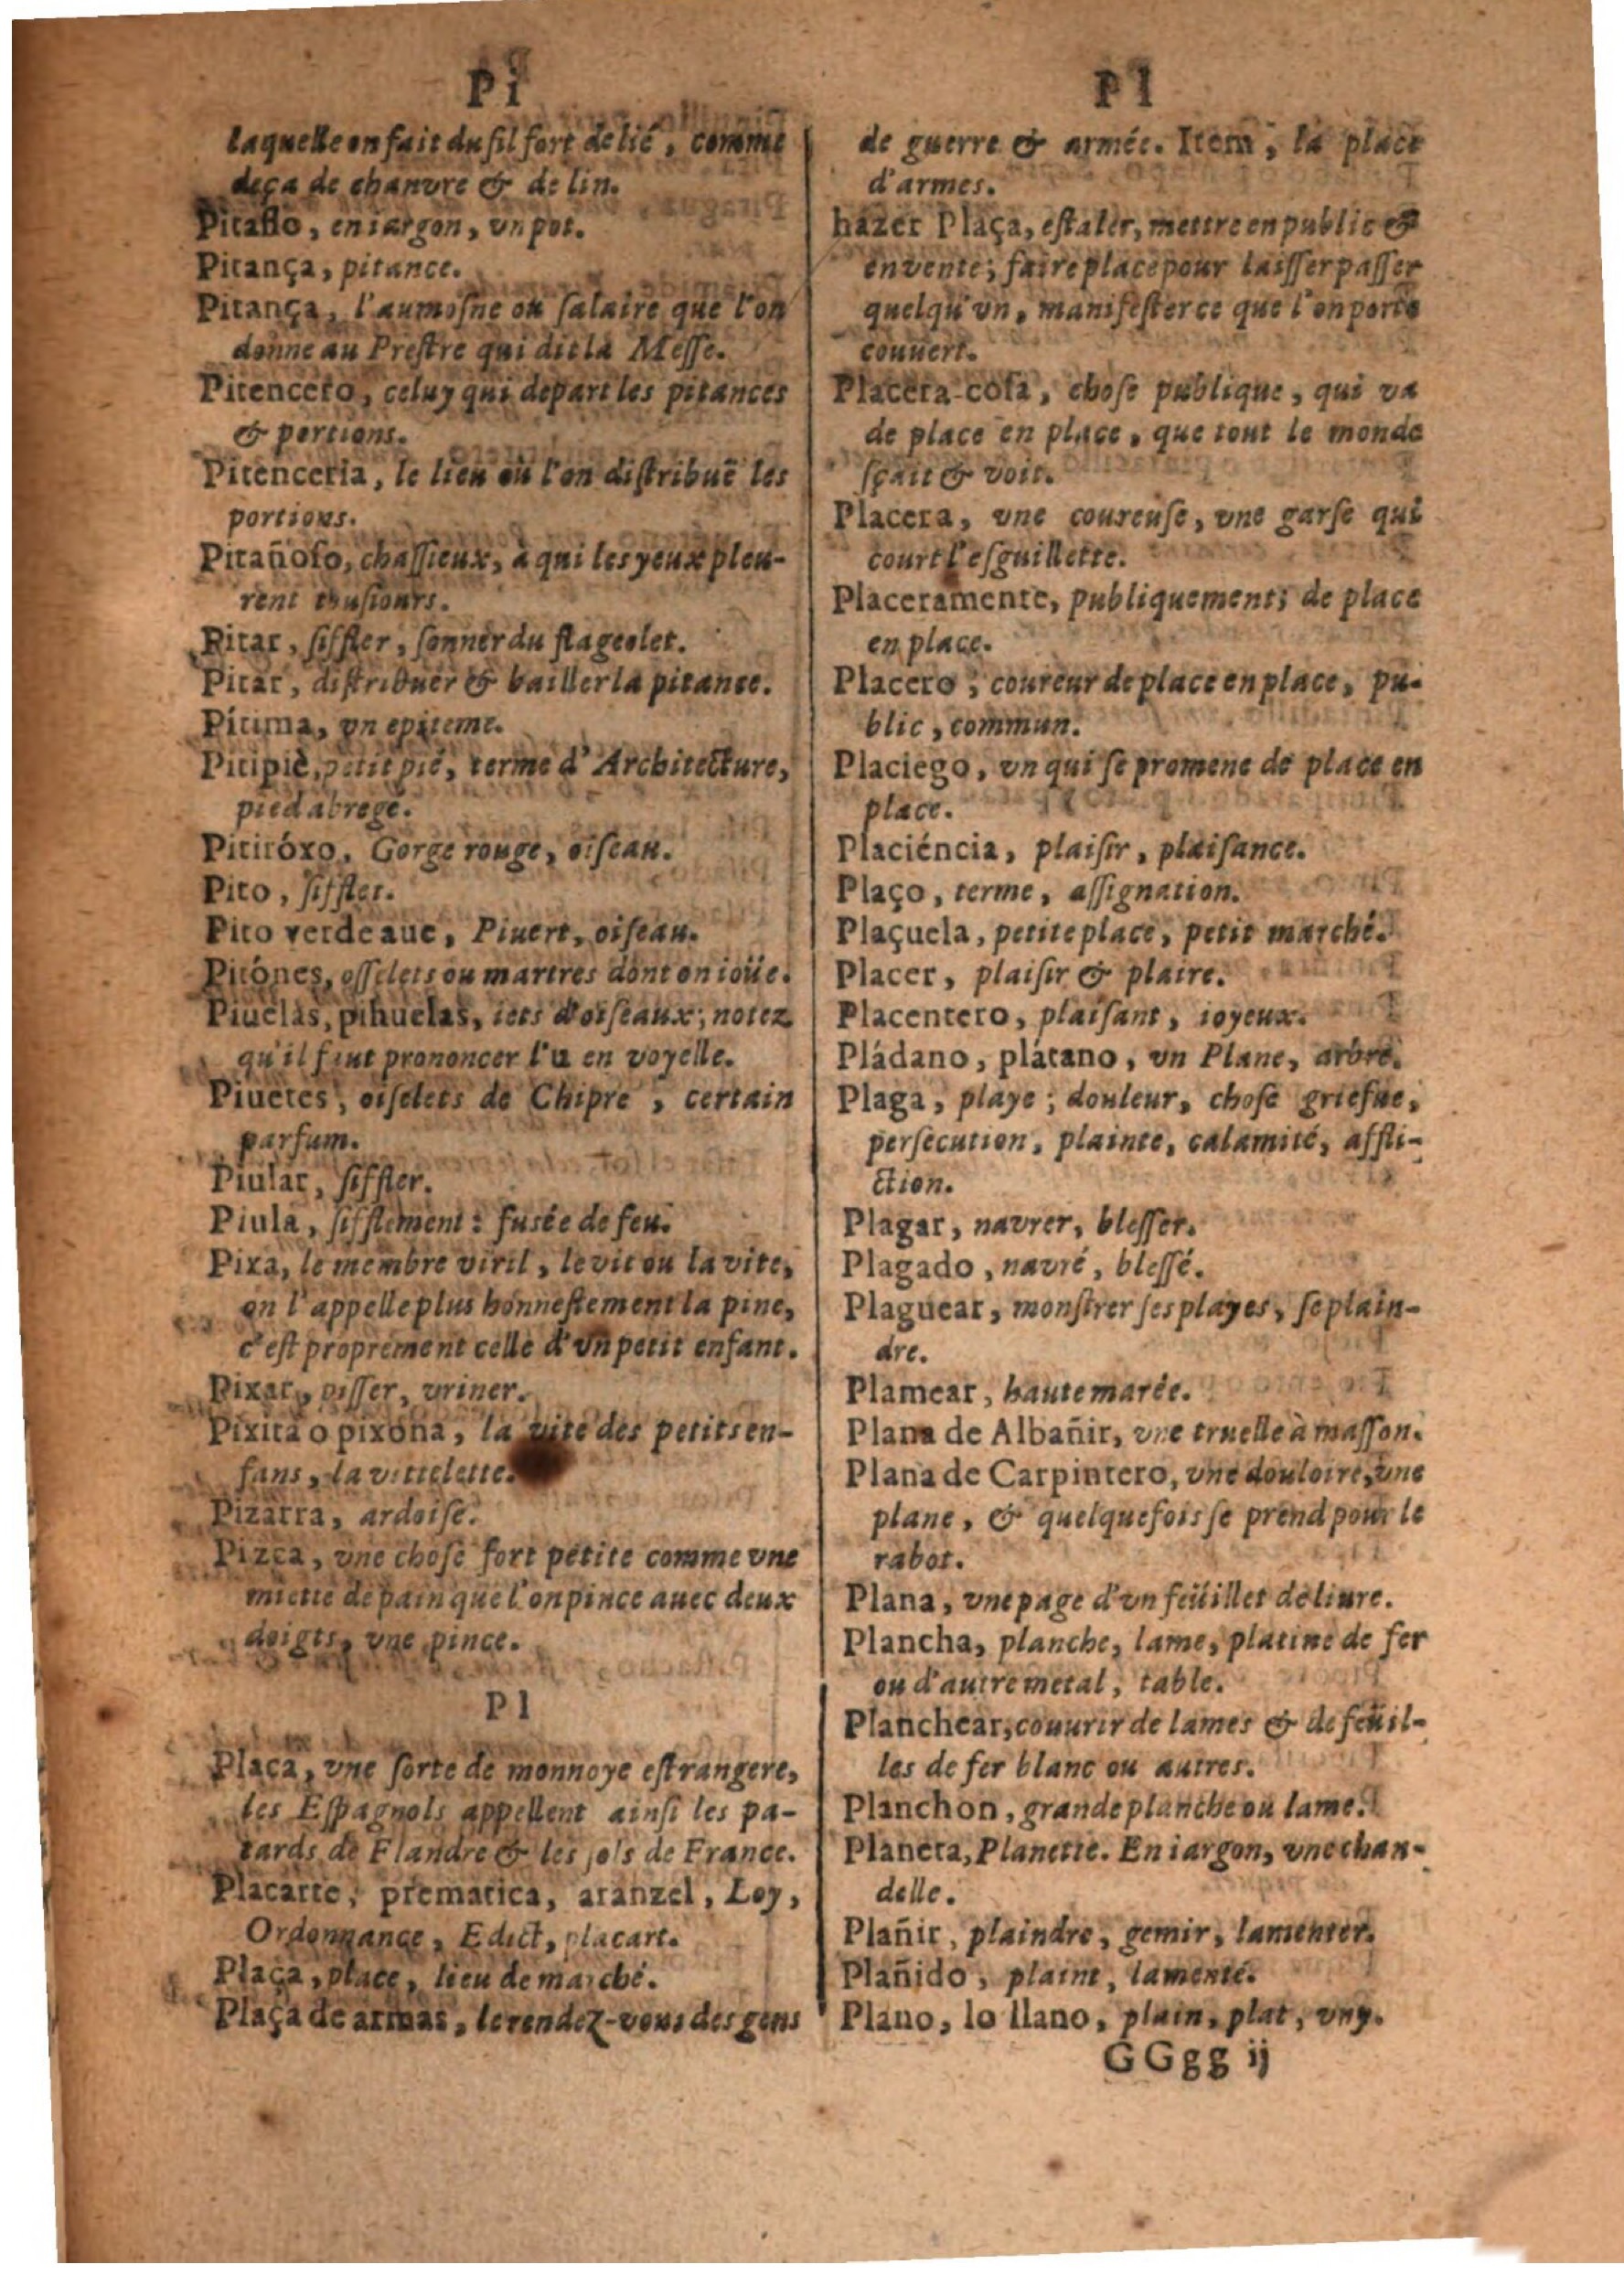 Pi
laquelle on fait du fil fort delié, comme
deça de chanvre & de lin.
Pitaflo, en iargon, vn pot.
Pitança, pitance.
Pitança, l'aumoſne ou ſalaire que l'on
donne au Preſtre qui dit la Meſſe.
Pitencero, celuy qui depart les pitances
& portions.
Pitenceria, le lieu où l'on diſtribuë les
portions.
Pitañoſo, chaſſieux, à qui les yeux pleu-
rent touſiours.
Pitar, ſiffler, ſonner du flageolet.
Pitar, diſtribuer & bailler la pitance.
Pítima, vn epiteme.
Pitipiè, petit pié, terme d'Architecture,
pied abregé.
Pitiróxo, Gorge rouge, oiſeau.
Pito, ſifflet.
Pito verde aue, Piuert, oiſeau.
Pitónes, oſſelets ou martres dont on ioüe.
Piuelas, pihuelas, iets d'oiſeaux; notez
qu'il faut prononcer l'u en voyelle.
Piuetes, oiſelets de Chipre, certain
parfum.
Piular, ſiffler.
Piula, ſifflement: fusée de feu.
Pixa, le membre viril, le vit ou la vite,
on l'appelle plus honneſtement la pine,
c'eſt proprement celle d'vn petit enfant.
Pixar, piſſer, vriner.
Pixita o pixona, la vite des petits en-
fans, la vittelette.
Pizarra, ardoiſe.
Pizca, vne choſe fort petite comme vne
miette de pain que l'on pince auec deux
doigts, vne pince.
Pl
Placa, vne ſorte de monnoye eſtrangere,
les Eſpagnols appellent ainſi les pa-
tards de Flandre & les ſols de France.
Placarte, prematica, aranzel, Loy,
Ordonnance, Edict, placart.
Plaça, place, lieu de marché.
Plaça de armas, le rendez-vous des gens
Pl
de guerre & armée. Item, la place
d'armes.
hazer Plaça, eſtaler, mettre en public &
en vente; faire place pour laiſſer paſſer
quelqu'vn, manifeſter ce que l'on porte
couuert.
Placera coſa, choſe publique, qui va
de place en place, que tout le monde
ſçait & voit.
Placera, vne coureuſe, vne garſe qui
court l'eſguillette.
Placeramente, publiquement; de place
en place.
Placero, coureur de place en place, pu-
blic, commun.
Placiego, vn qui ſe promene de place en
place.
Placiéncia, plaiſir, plaiſance.
Plaço, terme, aſſignation.
Plaçuela, petite place, petit marché.
Placer, plaiſir & plaire.
Placentero, plaiſant, ioyeux.
Pládano, plátano, vn Plane, arbre.
Plaga, playe; douleur, choſe griefue,
perſecution, plainte, calamité, affli-
ction.
Plagar, navrer, bleſſer.
Plagado, navré, bleſſé.
Plaguear, monſtrer ſes playes, ſe plain-
dre.
Plamear, haute marée.
Plana de Albañir, vne truelle à maſſon.
Plana de Carpintero, vne douloire, vne
plane, & quelquefois ſe prend pour le
rabot.
Plana, vne page d'vn feüillet de liure.
Plancha, planche, lame, platine de fer
ou d'autre metal, table.
Planchear, couurir de lames & de feüil-
les de fer blanc ou autres.
Planchon, grande planche ou lame.
Planeta, Planette. En iargon, vne chan-
delle.
Plañir, plaindre, gemir, lamenter.
Plañido, plaint, lamenté.
Plano, lo llano, plain, plat, vny.
GGgg ij